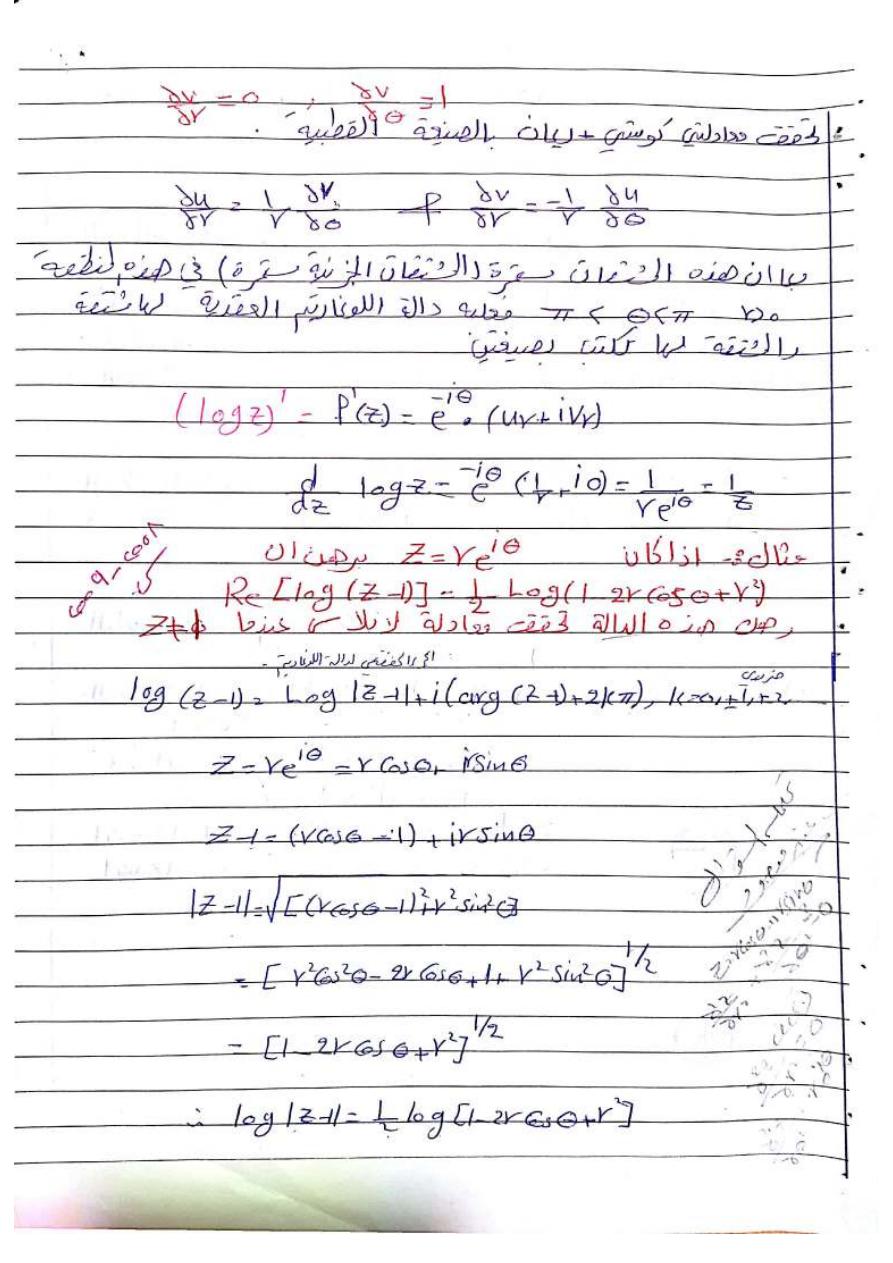 ∂v/∂r = 0 , ∂v/∂θ = 1
تحققت معادلتي كوشي - ريمان بالصيغة القطبية .
∂u/∂r = 1/r ∂v/∂θ ∂v/∂r = -1/r ∂u/∂θ
بما ان هذه المشتقات مستمرة (المشتقات الجزئية مستمرة) في هذه المنطقة
r>0 -π < θ < π فعليه دالة اللوغاريتم العقدية لها مشتقة
والمشتقة لها تكتب بصيغتين
(log z)' = f'(z) = e^{-iθ} . (ur + ivr)
d/dz log z = e^{-iθ} (1/r + i0) = 1/(re^{iθ}) = 1/z
مثال :- اذا كان z = re^{iθ} برهن ان
Re [log (z-1)] = 1/2 Log (1-2r cosθ + r²)
وهل هذه الدالة تحقق معادلة لابلاس عندما z ≠ 1
الجزء الحقيقي لدالة اللوغاريتم .
log (z-1) = Log |z-1| + i(arg (z-1) + 2kπ), k=0, ±1, ±2
z = re^{iθ} = r cosθ + i r sinθ
z-1 = (r cosθ - 1) + i r sinθ
|z-1| = √[(r cosθ - 1)² + r² sin²θ]
= [r² cos²θ - 2r cosθ + 1 + r² sin²θ]^{1/2}
= [1 - 2r cosθ + r²]^{1/2}
∴ log |z-1| = 1/2 log [1 - 2r cosθ + r²]